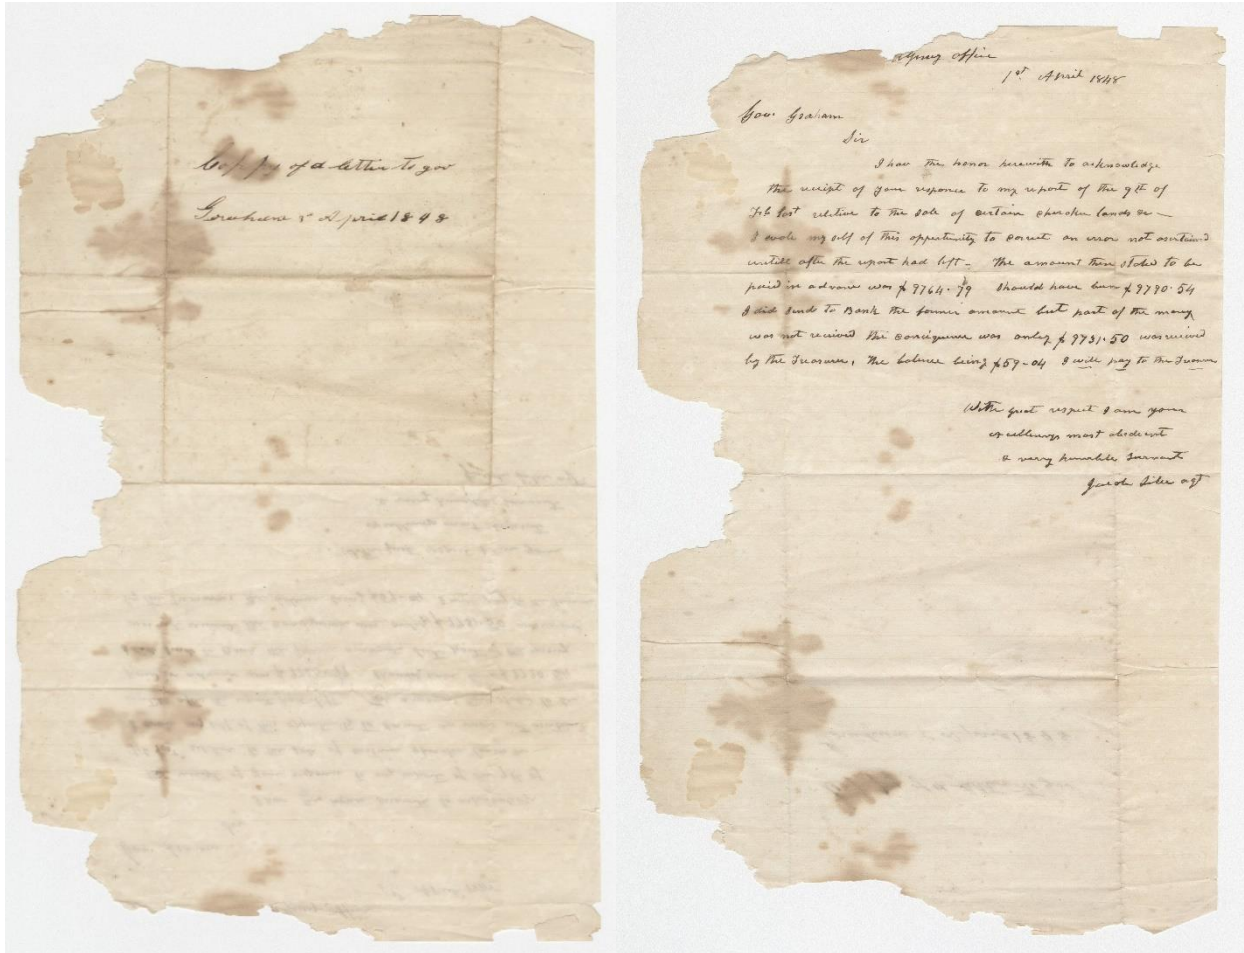 Coppy of a letter to gov
Graham 1st April 1848
Agency office
1st April 1848
Gov. Graham
Sir
I have the honor herewith to acknowledge
the receipt of your responce to my report of the 9th of
Feb last relative to the sale of certain cherokee lands &c -
I avale my self of this opportunity to correct an error not asertained
untill after the report had left - The amount then stated to be
paid in advance was $ 9764.79 Should have been $ 9790.54
I did send to Bank the former amount but part of the money
was not received the consequence was only $ 9731.50 was received
by the Treasurer, the balance being $59-04 I will pay to the Treasurer
With great respect I am your
excellencys most obedient
& very humble Servant
Jacob Siler agt